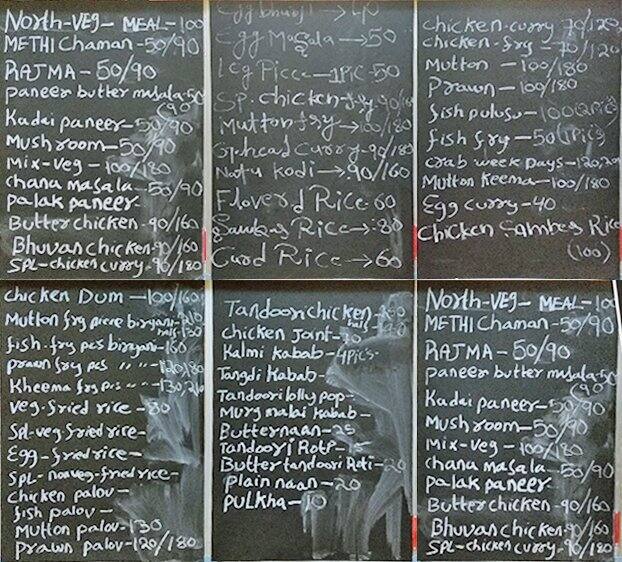 North-VEG- MEAL-100
METHI Chaman-50/90
RAJMA-50/90
paneer butter masala-50
(90)
Kadai paneer-50/90
Mushroom-50/90
Mix-veg-100/180
chana masala-50/90
palak paneer
Butter chicken-90/160
Bhuvan chicken-90/160
SPL-chicken curry-90/180
Egg bhurji → 40
Egg Masala → 50
Leg Piece-1PIC-50
Sp. chicken fry 90/180
Mutton fry → 100/180
Sp. head Curry-90/180
Natu kodi → 90/160
Floverd Rice 60
Rice → 80
Curd Rice → 60
Chicken-curry 70/120
chicken-fry-70/120
Mutton-100/180
Prawn-100/180
fish pulusu-100(2Pics)
fish fry-50(1Pic)
crab week Days-120/
Mutton Keema-100/180
Egg curry-40
Chicken Rice
(100)
chicken Dum-100/160
Mutton fry piece biryani-210
half-130
fish-fry pcs biryani-160
prawn fry pcs " "-120/180
Kheema fry pcs " "-130/210
veg-fried rice-80
Spl-veg-fried rice-
Egg-fried rice-
SPL-nonveg-fried rice-
Chicken palov-
fish palov-
Mutton palov-130
Prawn palov-120/180
Tandoori chicken-
half
chicken Joint-
Kalmi kabab-4Pics-
Tangdi Kabab-
Tandoori lolly pop-
Murg malai kabab-
Butternaan-25
Tandoori Roti-15
Butter tandoori Roti-20
plain naan-20
PULKHA-10
North-VEG- MEAL-100
METHI Chaman-50/90
RAJMA-50/90
paneer butter masala-50
(90)
Kadai paneer-50/90
Mushroom-50/90
Mix-veg-100/180
chana masala-50/90
palak paneer
Butter chicken-90/160
Bhuvan chicken-90/160
SPL-chicken curry-90/180